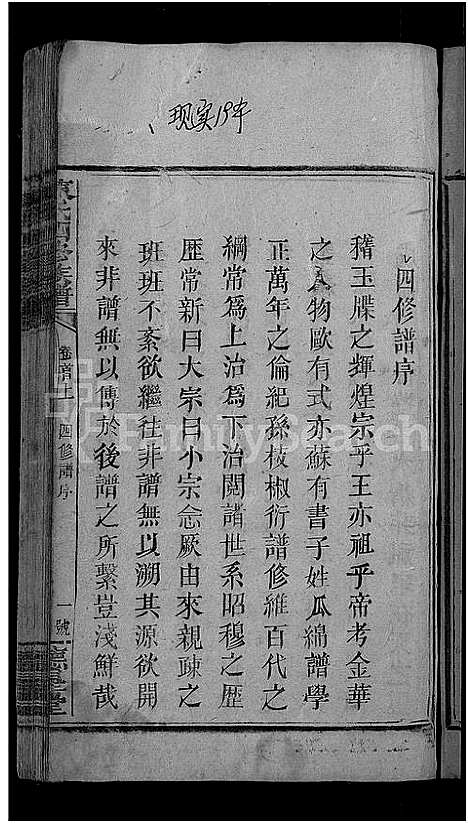 现实19年
四修譜序
稽玉牒之輝煌宗乎王亦祖乎帝考金華
之人物歐有式亦蘇有書子姓瓜綿譜學
正萬年之倫紀孫枝椒衍譜修維百代之
綱常爲上治爲下治閱諸世系昭穆之歴
歴常新曰大宗曰小宗念厥由來親疎之
班班不紊欲繼往非譜無以溯其源欲開
來非譜無以傳於後譜之所繫豈淺鮮哉
氏四修族譜
卷首上
四修譜序
一號
堂
FamilySearch